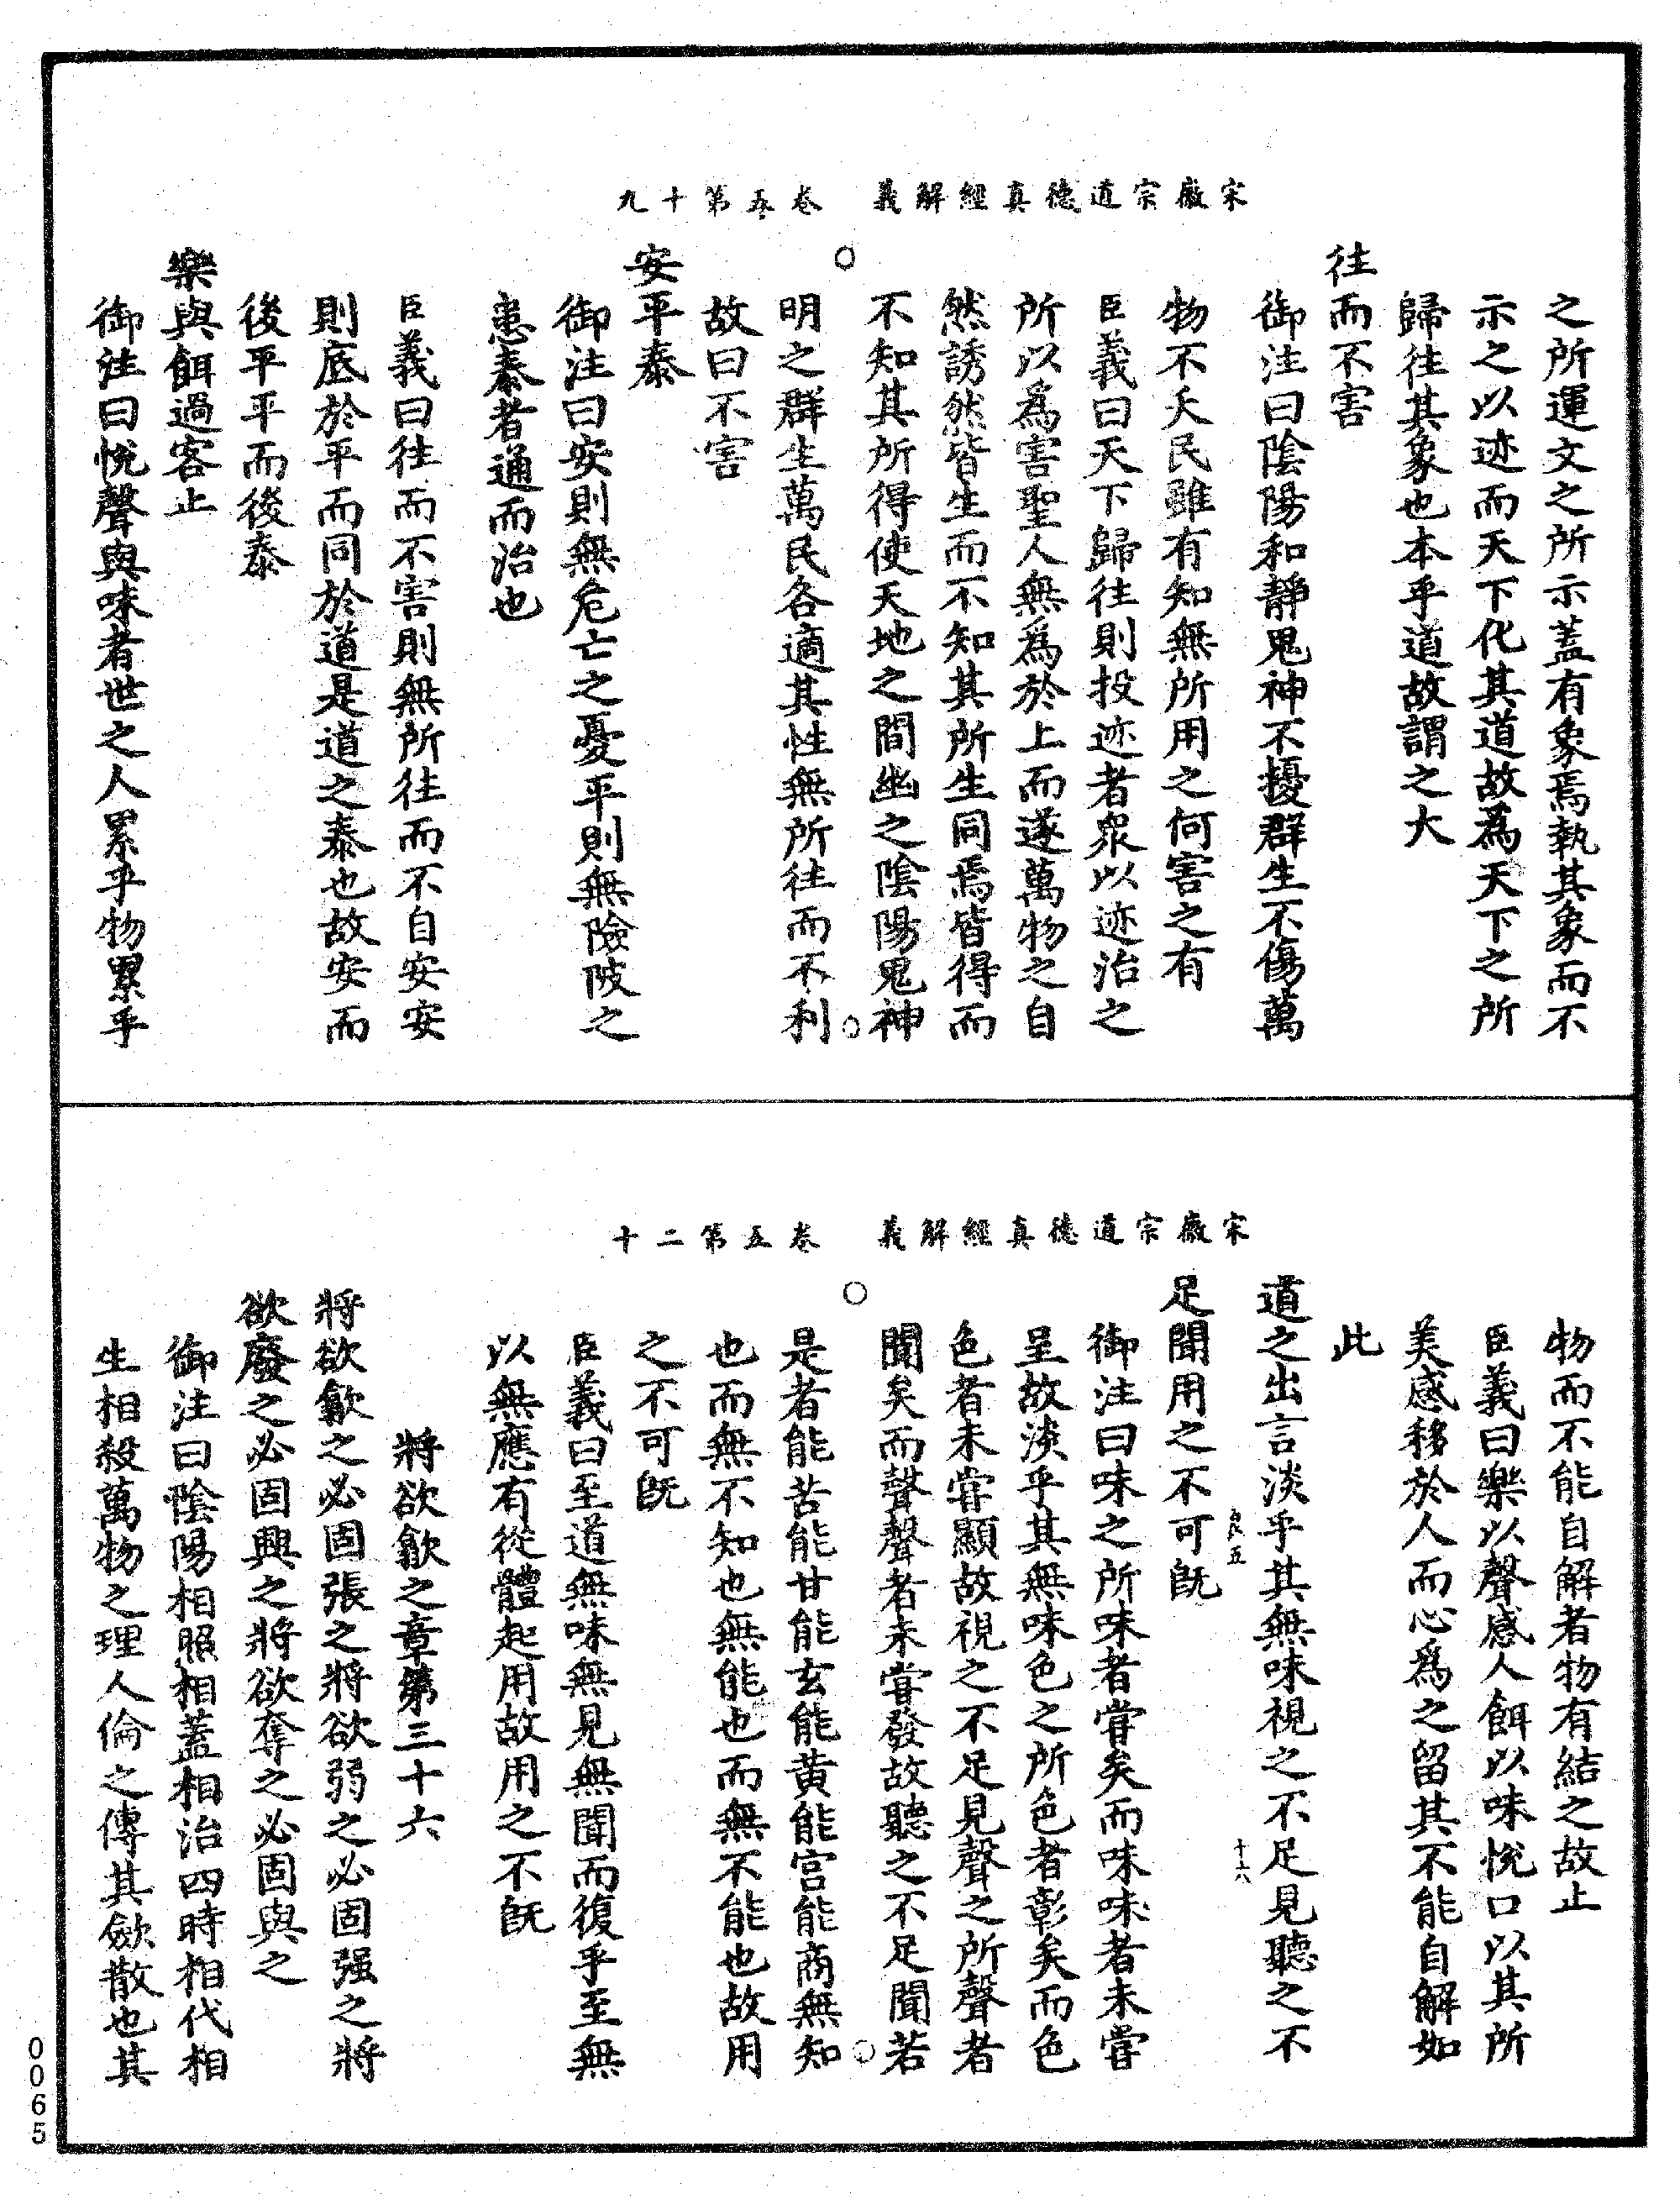 宋徽宗道德真經解義　卷五第十九
之所運文之所示蓋有象焉執其象而不
示之以迹而天下化其道故為天下之所
歸往其象也本乎道故謂之大
往而不害
御注曰陰陽和靜鬼神不擾群生不傷萬
物不夭民雖有知無所用之何害之有
臣義曰天下歸往則投迹者衆以迹治之
所以為害聖人無為於上而遂萬物之自
然誘然皆生而不知其所生同焉皆得而
不知其所得使天地之間幽之陰陽鬼神
明之群生萬民各適其性無所往而不利
故曰不害
安平泰
御注曰安則無危亡之憂平則無險陂之
患泰者通而治也
臣義曰往而不害則無所往而不自安安
則底於平而同於道是道之泰也故安而
後平平而後泰
樂與餌過客止
御注曰悅聲與味者世之人累乎物累乎
宋徽宗道德真經解義　卷五第二十
物而不能自解者物有結之故止
臣義曰樂以聲感人餌以味悅口以其所
美感移於人而心為之留其不能自解如
此
道之出言淡乎其無味視之不足見聽之不
良五　十六
足聞用之不可旣
御注曰味之所味者嘗矣而味味者未嘗
呈故淡乎其無味色之所色者彰矣而色
色者未嘗顯故視之不足見聲之所聲者
聞矣而聲聲者未嘗發故聽之不足聞若
是者能苦能甘能玄能黃能宮能商無知
也而無不知也無能也而無不能也故用
之不可旣
臣義曰至道無味無見無聞而復乎至無
以無應有從體起用故用之不旣
將欲歙之章第三十六
將欲歙之必固張之將欲弱之必固强之將
欲廢之必固興之將欲奪之必固與之
御注曰陰陽相照相蓋相治四時相代相
生相殺萬物之理人倫之傳其斂散也其
0065